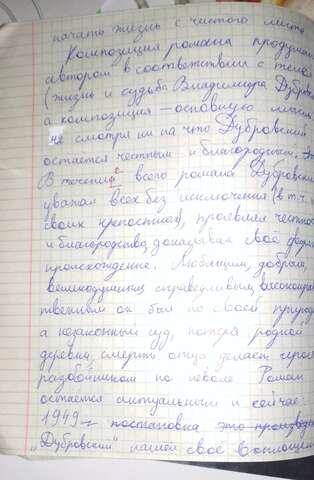 начать жизнь с чистого листа
Композиция романа продумана
автором в соответствии с темой
(жизнь и судьба Владимира Дубров
а композиция – основную мысль
не смотря ни на что Дубровский
остается честным и благородным.
В течение всего романа Дубровский
уважал всех без исключения (в т.ч.
своих крепостных), проявлял честность
и благородство, доказывая своё
происхождение. Любящим, добрым,
великодушным, справедливым, высоконрав
ственным он был по своей природе
а незаконный суд, потеря родной
деревни, смерть отца делает героя
разбойником по неволе. Роман
остается актуальным и сейчас:
1949 – постановка это произвед
"Дубровский" нашел своё воплощен